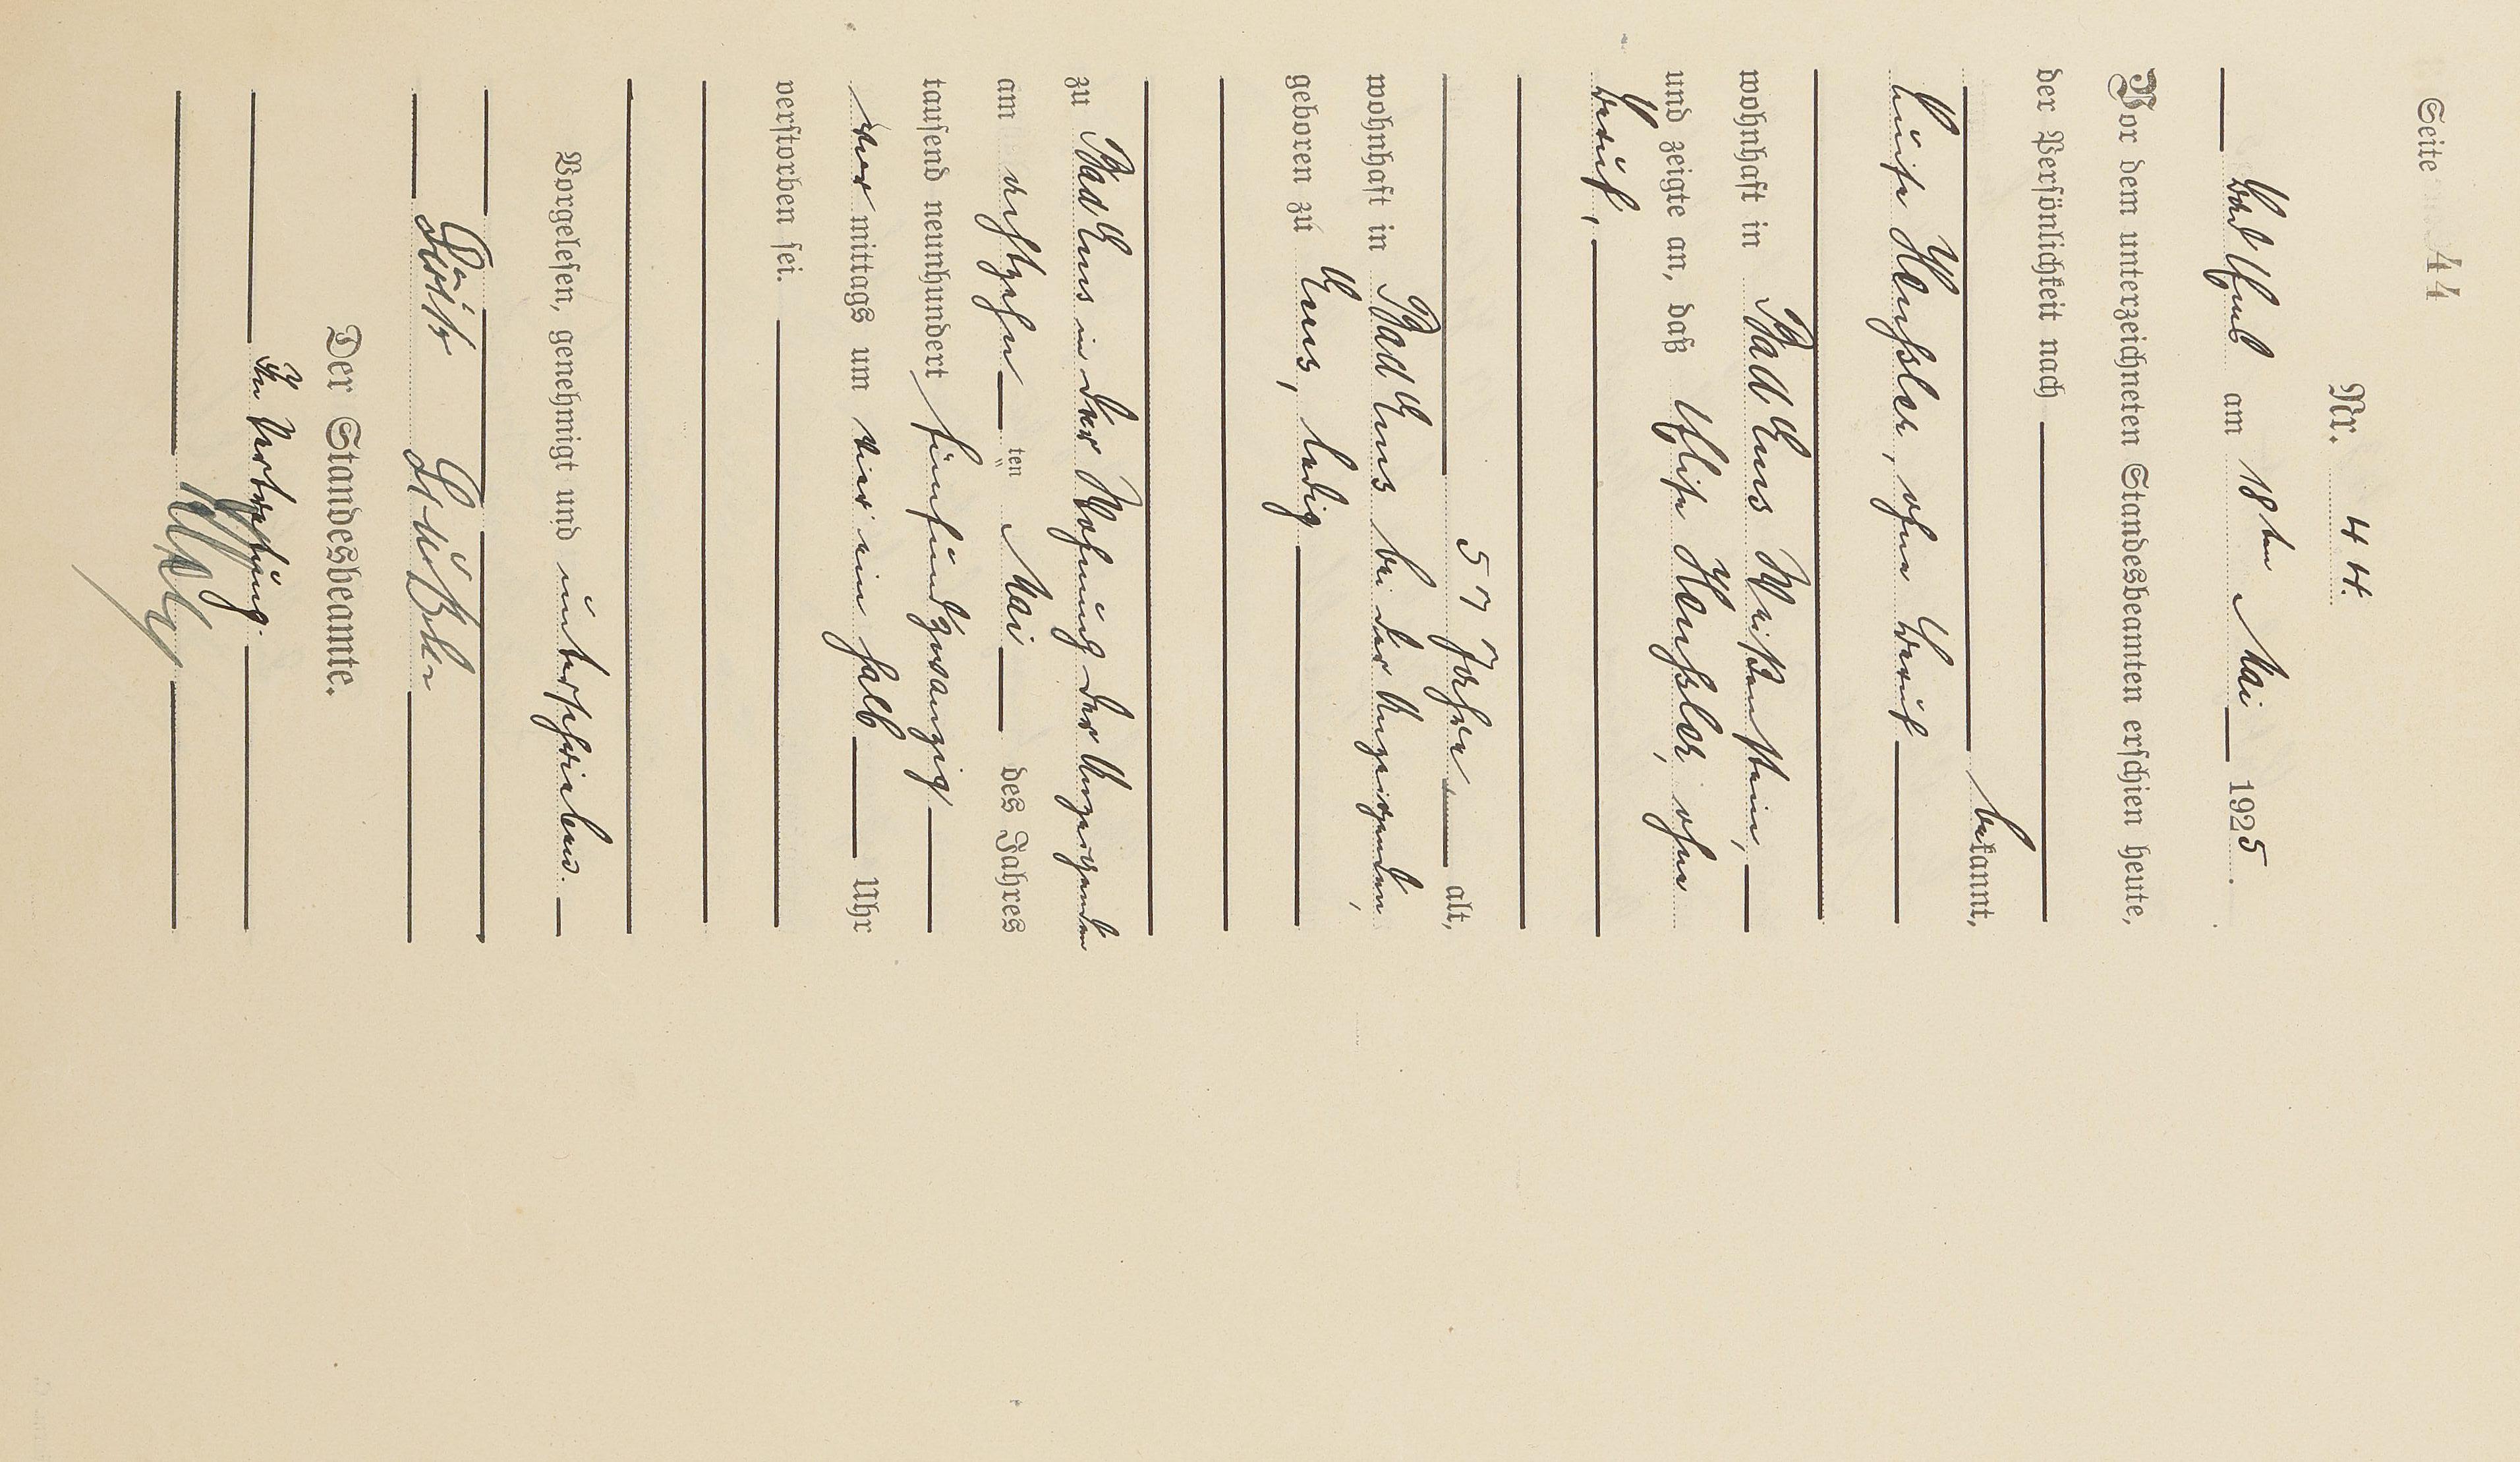 Seite 44
Nr. 44.
am 18ten Mai 1925.
Vor dem unterzeichneten Standesbeamten erschien heute,
der Persönlichkeit nach
bekannt,
Luise, ohne Beruf
wohnhaft in Bad Ems Weißenstein,
und zeigte an, daß Elise, ohne
Beruf,
57 Jahre alt,
wohnhaft in Bad Ems bei der Anzeigenden,
geboren zu Ems, ledig
zu Bad Ems in der Wohnung der Anzeigenden
am achtzehnten Mai des Jahres
tausend neunhundert fünfundzwanzig
vor mittags um vier ein halb Uhr
verstorben sei.
Vorgelesen, genehmigt und unterschrieben.
Der Standesbeamte.
In Vertretung.